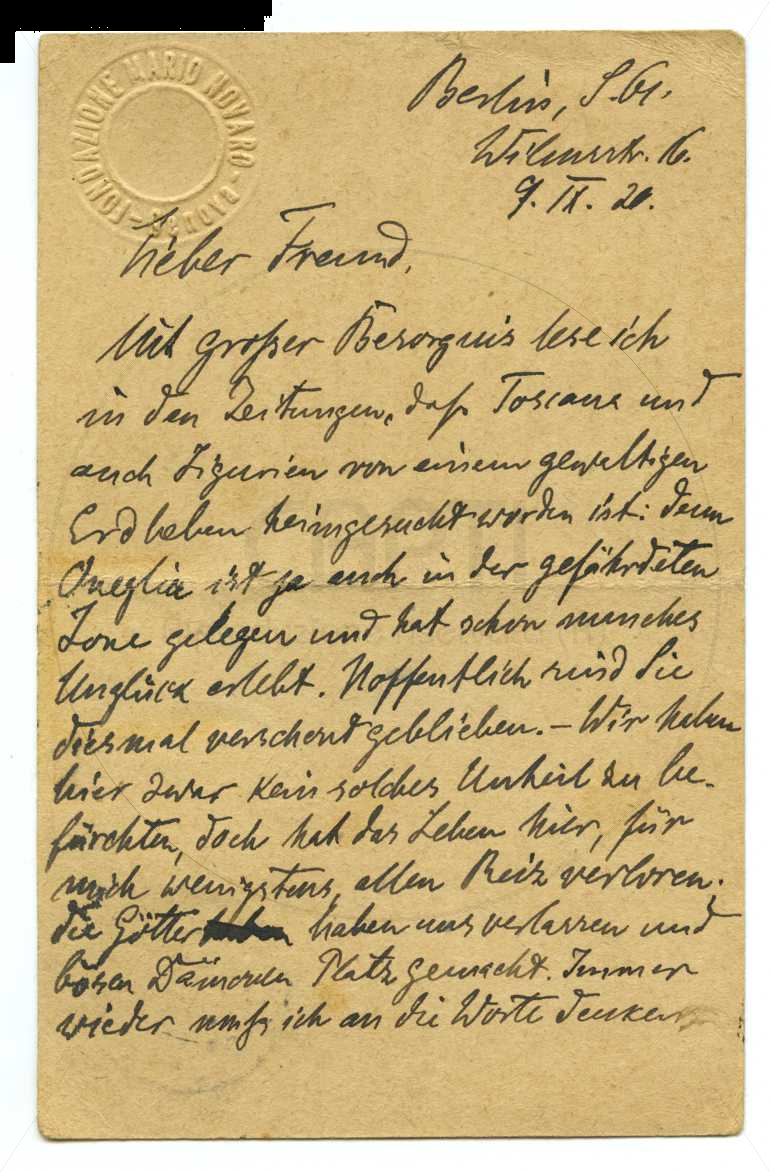 FONDAZIONE MARIO NOVARO - Genova -
Berlin, S. 61.
Wilmsstr. 16.
9. IX. 20.
Lieber Freund,
Mit großer Besorgnis lese ich
in den Zeitungen, daß Toscana und
auch Ligurien von einem gewaltigen
Erdbeben heimgesucht worden ist: denn
Oneglia ist ja auch in der gefährdeten
Zone gelegen und hat schon manches
Unglück erlebt. Hoffentlich sind Sie
diesmal verschont geblieben. – Wir haben
hier zwar kein solches Unheil zu be-
fürchten, doch hat das Leben hier, für
mich wenigstens, allen Reiz verloren.
die Götter haben uns verlassen und
bösen Dämonen Platz gemacht. Immer
wieder muß ich an die Worte denken